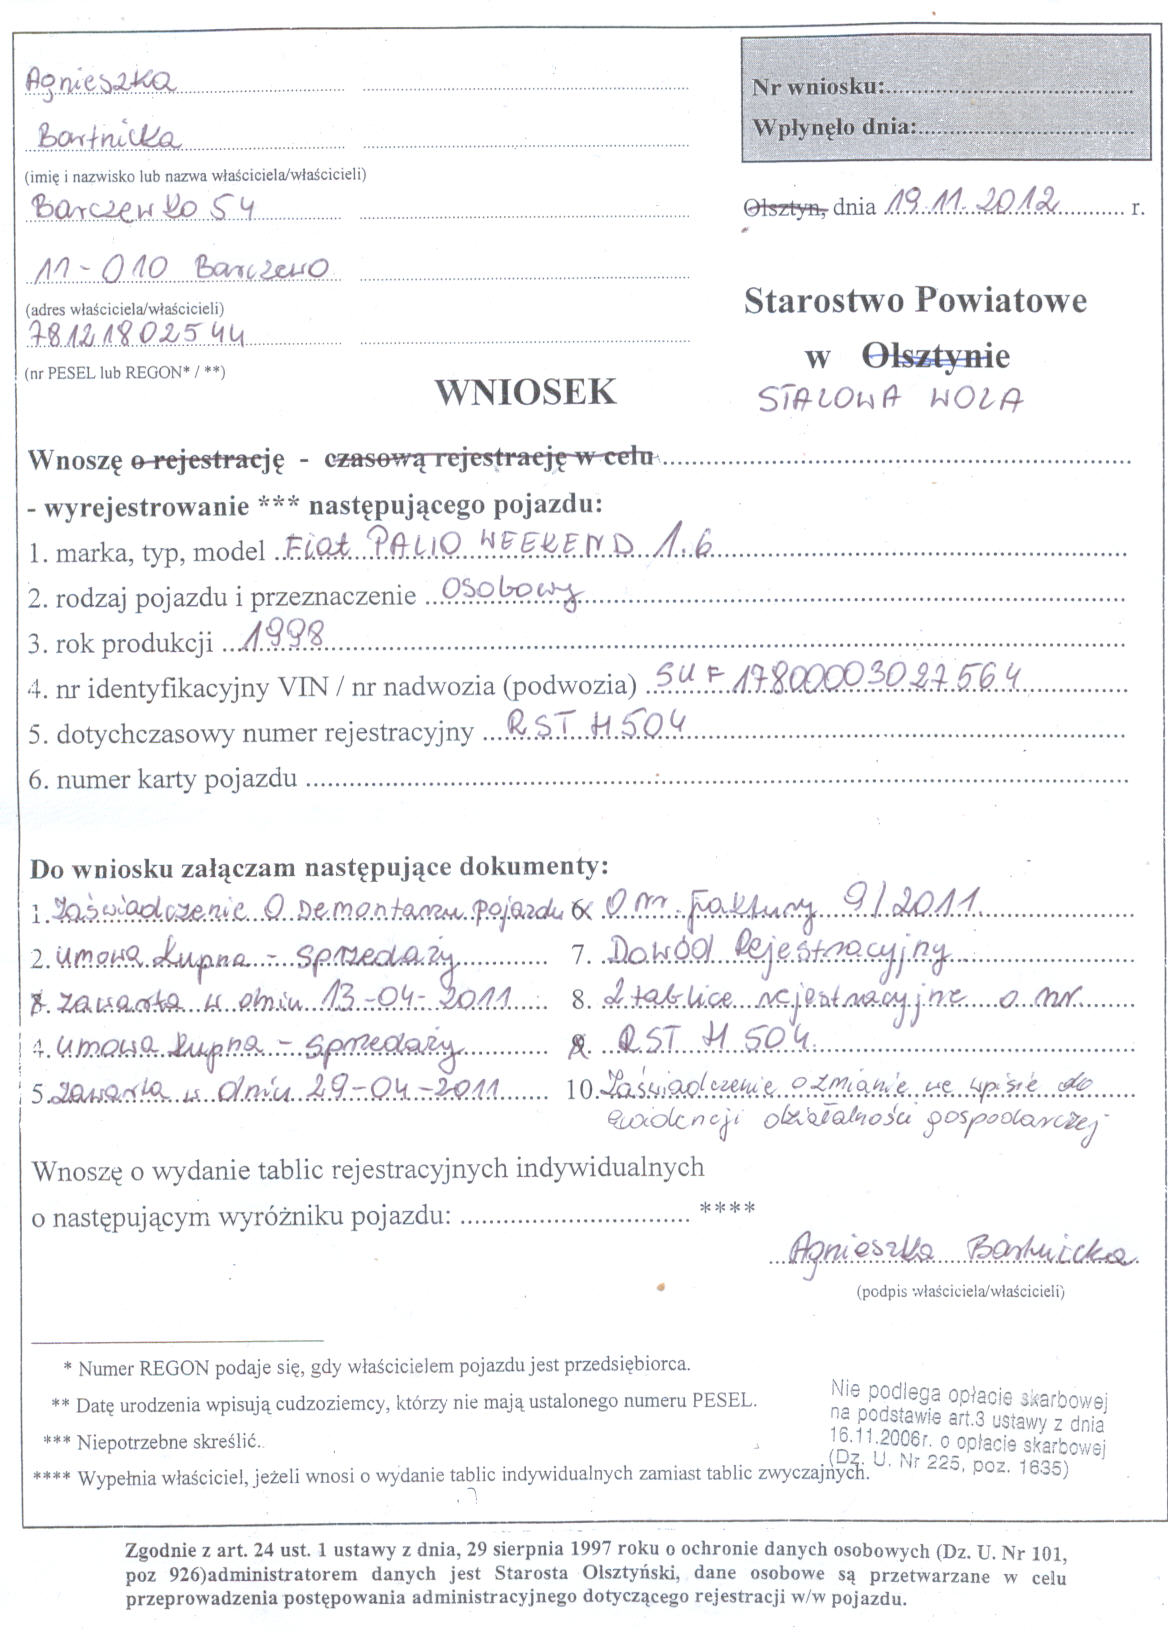 Agnieszka
Bartnicka
(imię i nazwisko lub nazwa właściciela/właścicieli)
Barczewko 54
11-010 Barczewo
(adres właściciela/właścicieli)
78121802544
(nr PESEL lub REGON* / **)
Nr wniosku:
Wpłynęło dnia:
Olsztyn, dnia 19.11.2012 r.
Starostwo Powiatowe
w Olsztynie
STALOWA WOLA
WNIOSEK
Wnoszę o rejestrację - czasową rejestrację w celu
- wyrejestrowanie *** następującego pojazdu:
1. marka, typ, model Fiat PALIO WEEKEND 1.6
2. rodzaj pojazdu i przeznaczenie osobowy
3. rok produkcji 1998
4. nr identyfikacyjny VIN / nr nadwozia (podwozia) SUF17800003027564
5. dotychczasowy numer rejestracyjny RST H504
6. numer karty pojazdu
Do wniosku załączam następujące dokumenty:
1. Zaświadczenie o Demontarzu pojazdu
2. umowa kupna - sprzedaży
3. zawarta w dniu 13-04-2011
4. umowa kupna - sprzedaży
5. zawarta w dniu 29-04-2011
6. O nr. Faktury 9/2011
7. Dowód Rejestracyjny
8. 2 tablice rejestracyjne o nr.
9. RST H 504
10. Zaświadczenie o zmianie we wpisie do
ewidencji działalności gospodarczej
Wnoszę o wydanie tablic rejestracyjnych indywidualnych
o następującym wyróżniku pojazdu: ****
Agnieszka Bartnicka
(podpis właściciela/właścicieli)
* Numer REGON podaje się, gdy właścicielem pojazdu jest przedsiębiorca.
** Datę urodzenia wpisują cudzoziemcy, którzy nie mają ustalonego numeru PESEL.
*** Niepotrzebne skreślić.
**** Wypełnia właściciel, jeżeli wnosi o wydanie tablic indywidualnych zamiast tablic zwyczajnych.
Nie podlega opłacie skarbowej
na podstawie art.3 ustawy z dnia
16.11.2006r. o opłacie skarbowej
(Dz. U. Nr 225, poz. 1635)
Zgodnie z art. 24 ust. 1 ustawy z dnia, 29 sierpnia 1997 roku o ochronie danych osobowych (Dz. U. Nr 101,
poz 926)administratorem danych jest Starosta Olsztyński, dane osobowe są przetwarzane w celu
przeprowadzenia postępowania administracyjnego dotyczącego rejestracji w/w pojazdu.